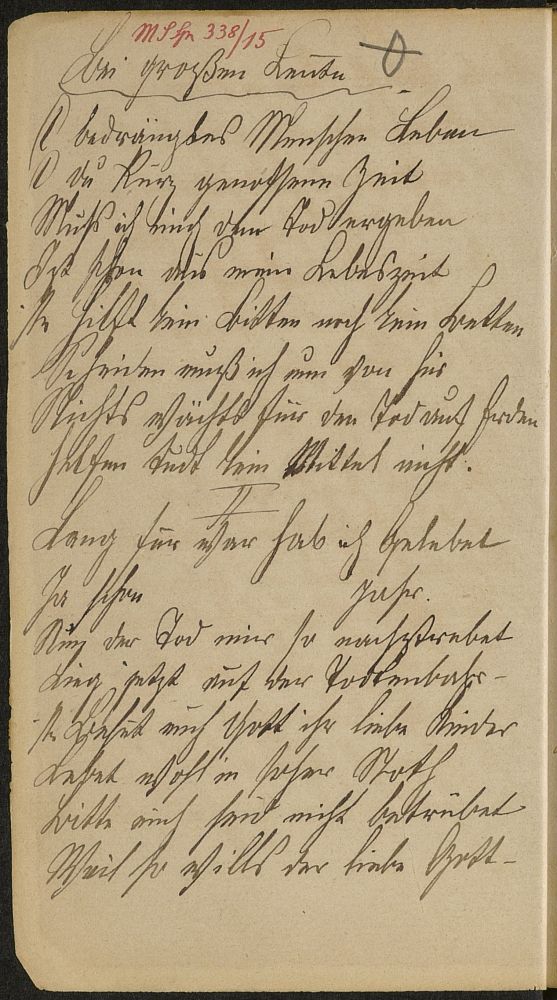 MS Hs 338/15
Bei großen Leuten
O bedrängtes Menschen Leben
O du kurz genossene Zeit
Muß ich mich dem Tod ergeben
Ist schon aus mein Lebeszeit
/: Hilft kein bitten noch kein Betten
Scheiden muß ich nun von hir
Nichts wächst für den Tod auf Erden
helfen tudt kein Mittel nicht.
II
Lang für war hab ich gelebet
Ja schon Jahr.
Nun der Tod mir so nachstrebet
Lieg jetzt auf der Todtenbahr-
/: Behüt euch Gott ihr liebe Kinder
Lebet wohl in hoher Noth
Bitte euch seid nicht betrübet
Weil so wills der liebe Gott-